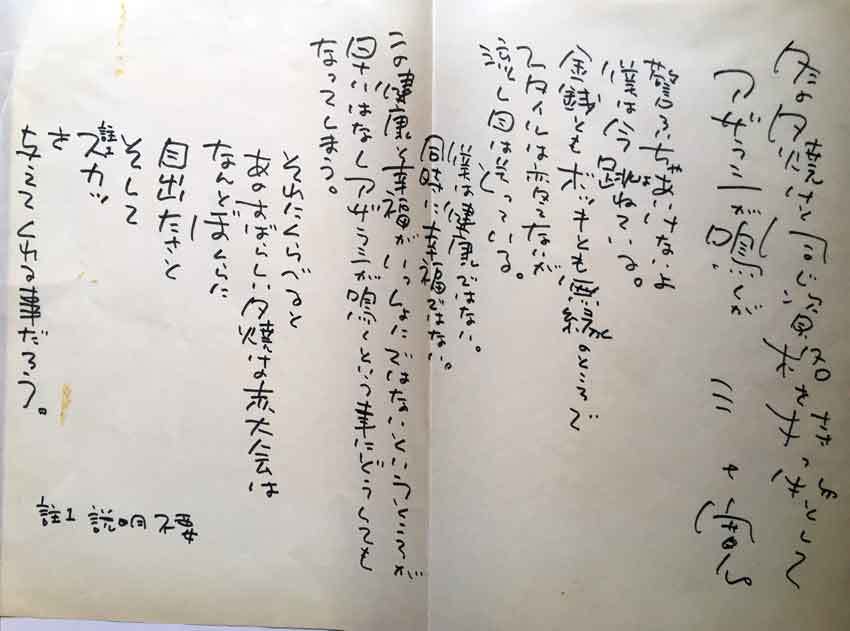 夕焼けと同じ
アザラシが鳴くが
驚ろいちゃあいけないよ
僕は今跳ねている。
金銭ともボッキとも無縁のところで
スタイルは変でないが
流し目は笑っている。
僕は健康ではない。
同時に幸福ではない。
この健康と幸福がいっしょにではないというところが
早いはなしアザラシが鳴くという事にどうしても
なってしまう。
それにくらべると
あのすばらしい夕焼けの赤大会は
なんとぼくらに
目出たさと
そして
註1
ズカッ
さ
与えてくれる事だろう。
註1 説明不要